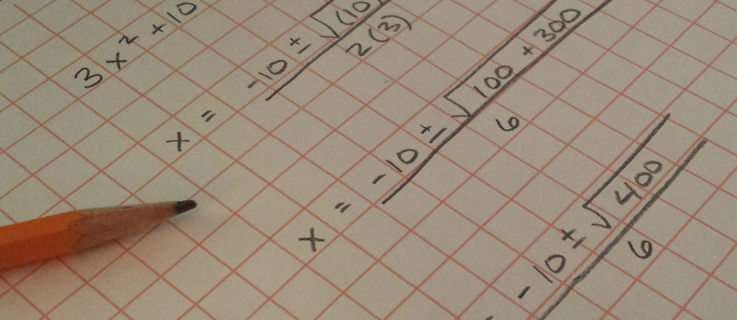 3x² + 10
x = -10 ± √(10
2(3)
x = -10 ± √100 + 300
6
-10 ± √400
6